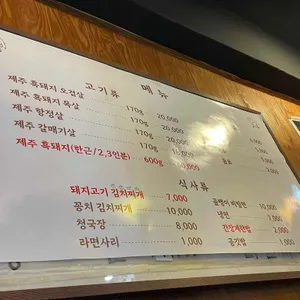 고기류 메뉴
제주 흑돼지 오겹살 170g 20,000
제주 흑돼지 목살 170g 20,000
제주 항정살 170g
제주 갈매기살 170g
제주 흑돼지(한근/2,3인분) 600g
식사류
돼지고기 김치찌개 7,000
꽁치 김치찌개 10,000
청국장 8,000
라면사리 1,000
골뱅이 비빔면 10,000
냉면 7,000
간장계란밥 2,000
공깃밥 1,000